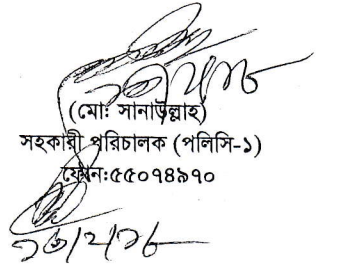 (মোঃ সানাউল্লাহ)
সহকারী পরিচালক (পলিসি-১)
ফোন:৫৫০৭৪৯৭০